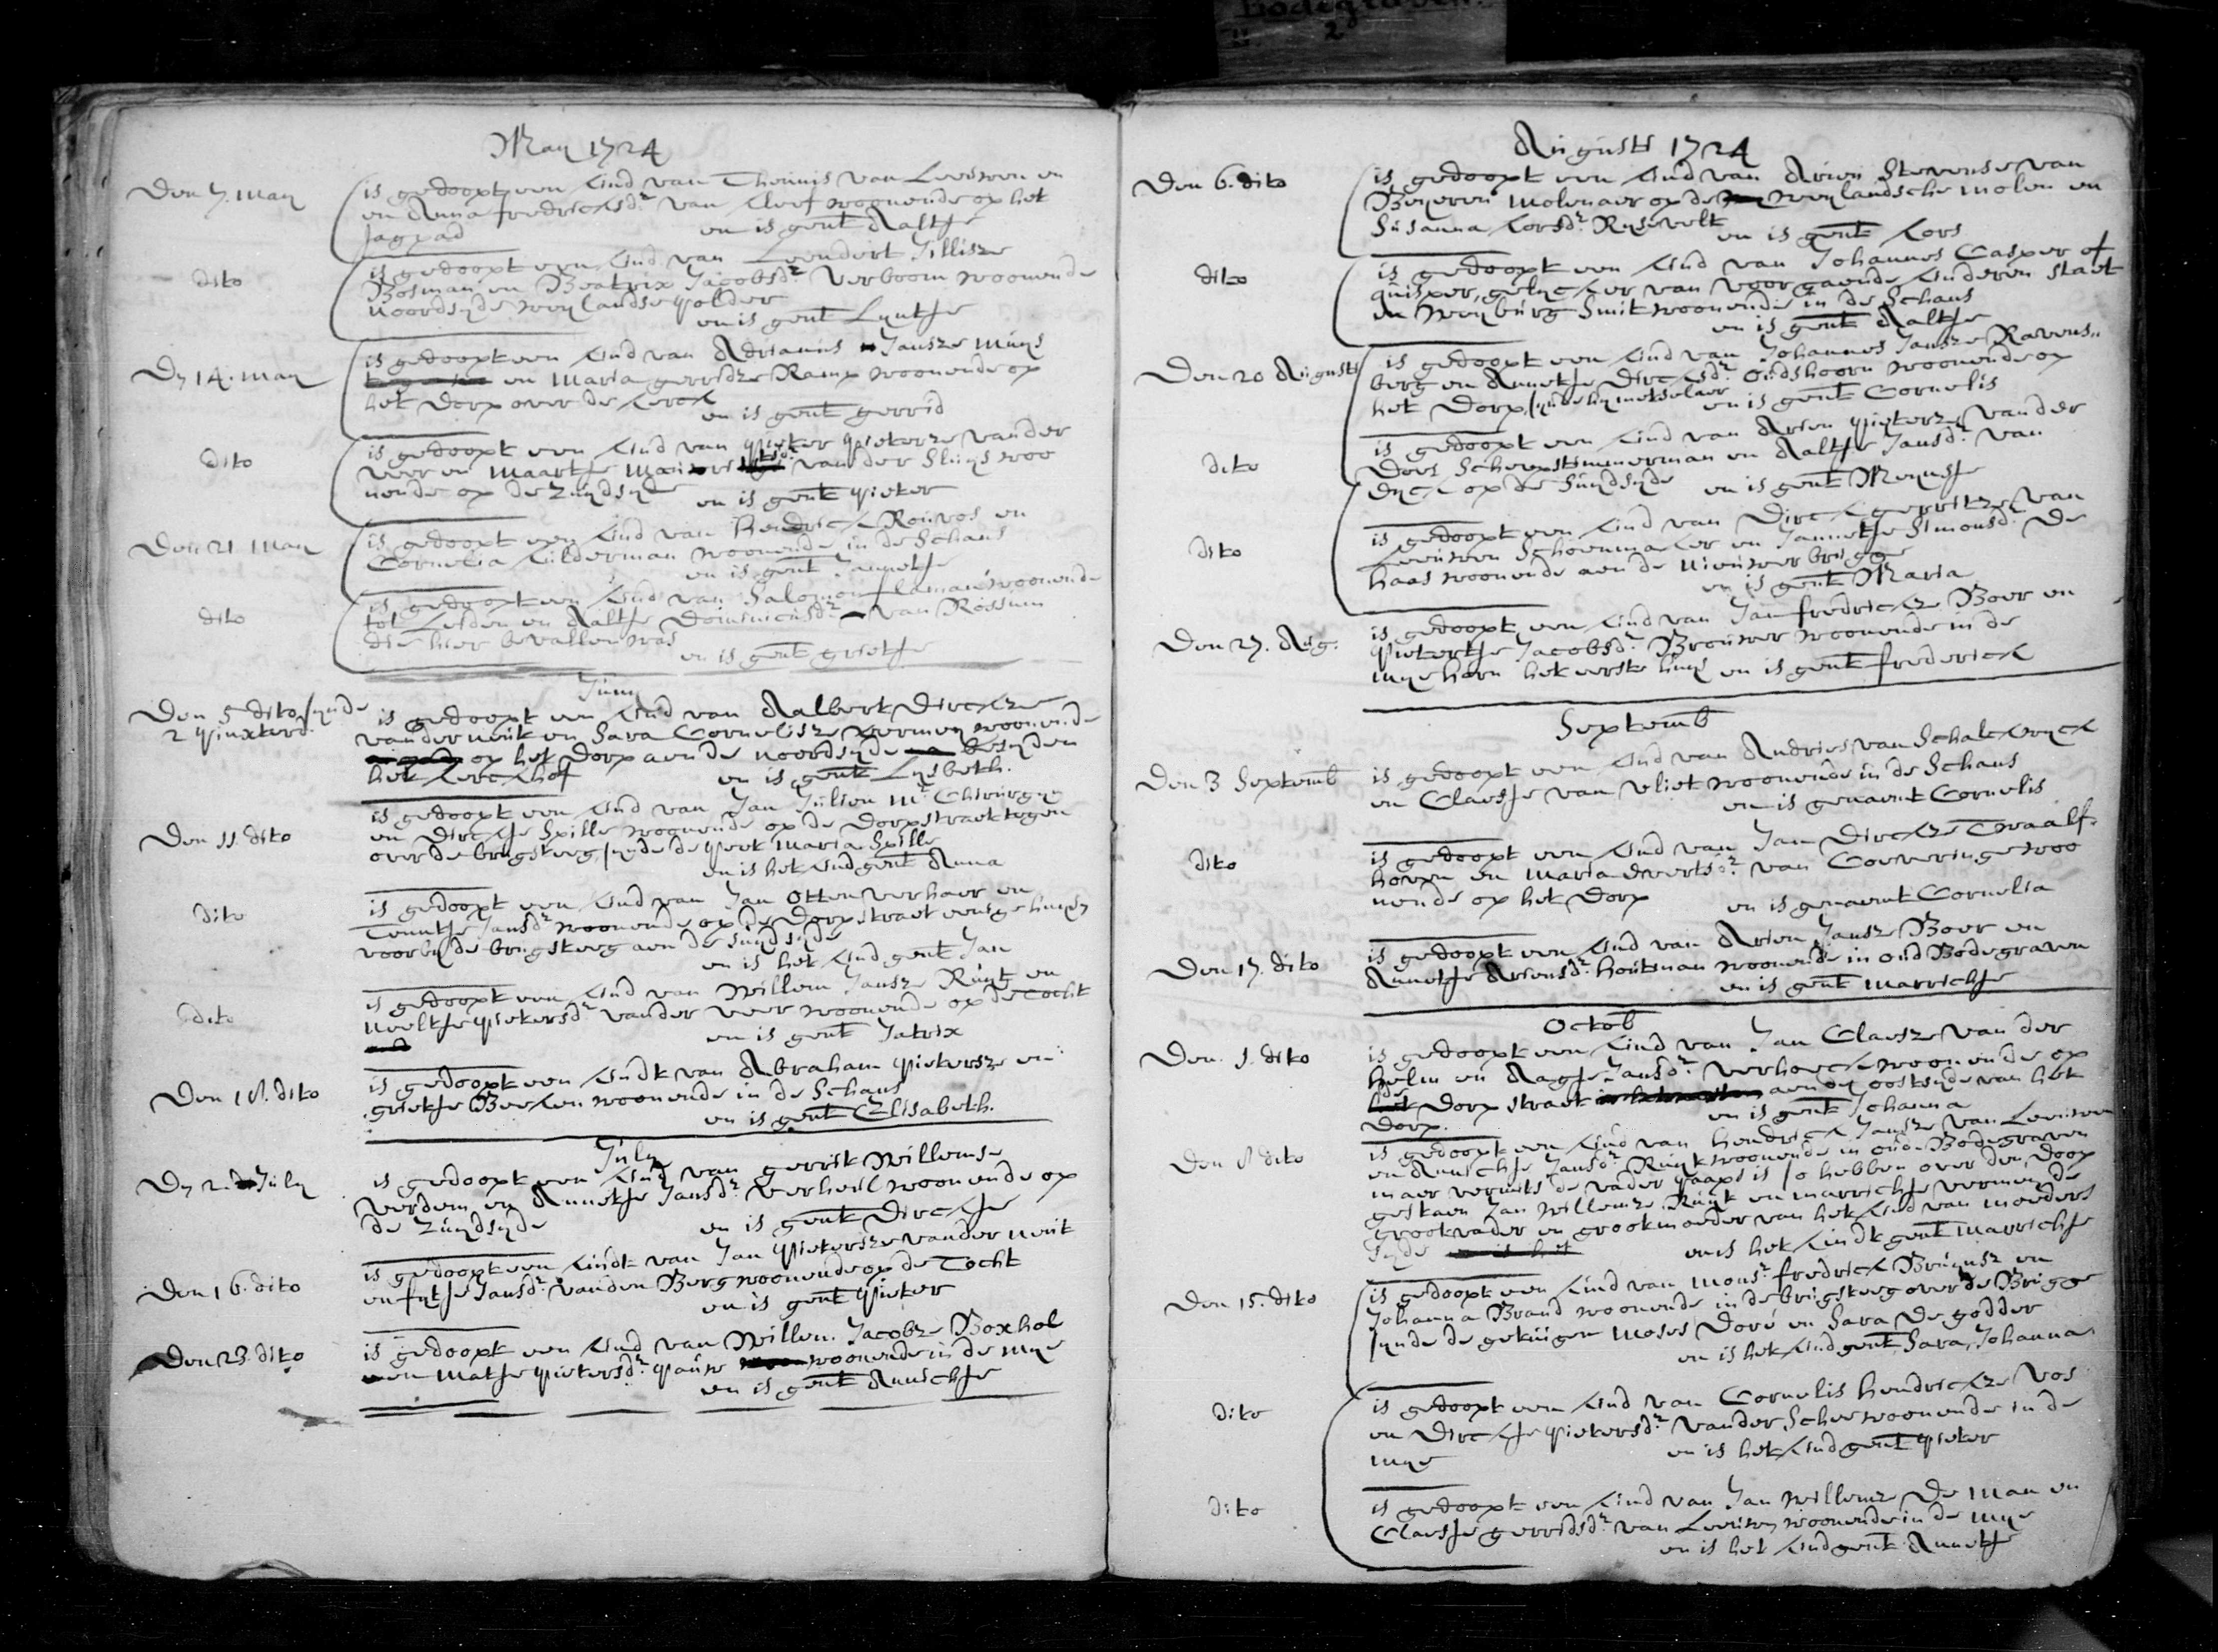 Bodegraven
2
May 1724
Den 7. May
is gedoopt een kind van Theunis van Leeuwen en
en Anna fredricksdr. van Cleef woonende op het
Jagpad en is gent Aaltje
dito
is gedoopt een kind van Leendert Jillisze
Bosman en Beatrix Jacobsdr. Verboom woonende
noordsijde weijlandse polder
en is gent Lijntje
Dn 14. May
is gedoopt een kind van Adrianus Jansze Muijs
en Maria gerridze Ramp woonende op
het Dorp over de kerck
en is gent gerrid
dito
is gedoopt een kind van pieter pieterze vander
veer en Maartje van der Sluijs woo
nende op de zuijdsijde en is gent pieter
Den 21 May
is gedoopt een kind van Hendrick Rouvos en
Cornelia kilderman woonende in de Schans
en is gent Jannetje
dito
is gedoopt een kind van Salomon flaman woonende
tot Leiden en Aaltje Dominicusdr. van Rossum
die hier bevallen was
en is gent grietje
Juny
Den 5 dito sijnde
2 pinxterd.
is gedoopt een kind van Aalbert Dirckze
vander neut en Sara Cornelisze kermen woonende
op het Dorp aen de noordsijde besijden
het kerckhof en is gent Lijsbeth.
Den 11. dito
is gedoopt een kind van Jan Julien Mr. Chirurgijn
en Dirckje Spille woonende op de Dorpstraet tegen
over de brugsteeg sijnde de peet Maria Spille
en is het kind gent Anna
dito
is gedoopt een kind van Jan Otten Verhaer en
Teuntje Jansdr. woonende op de Dorpstraet eenige huijsen
voorbij de brugsteeg aen de suijdsijde
en is het kind gent Jan
dito
is gedoopt een kind van Willem Jansze Ruijt en
neeltje pietersdr. vander veer woonende op de Tocht
en is gent Jatrix
Den 18. dito
is gedoopt een kindt van Abraham pietersze en
grietje Beeken woonende in de Schans
en is gent Elisabeth.
July
Dn 2. July
is gedoopt een kind van gerrit Willemse
verdam en Annetje Jansdr. Verheul woonende op
de zuijdsijde en is gent Dirckje
Den 16. dito
is gedoopt een kindt van Jan pietersze vander neut
en fijtje Jansdr. vanden Berg woonende op de Tocht
en is gent pieter
Den 23. dito
is gedoopt een kind van Willem Jacobze Boxhol
en Matje pietersdr. pauw woonende in de Mije
en is gent Annichje
Augusti 1724
Den 6. dito
is gedoopt een kind van Arien Stevense van
Beijeren Molenaer op de weijlandsche molen en
Susanna korsdr. Rijsevelt
en is gent kors
dito
is gedoopt een kind van Johannes Casper of
quisper, gelijck er van voorgaende kinderen staet
en Weijburg Smit woonende in de Schans
en is gent Aaltje
Den 20 Augusti
is gedoopt een kind van Johannes Jansze Ravens„
berg en Annetje Dircksdr. Oudshoorn woonende op
het Dorp, sijnde hij metselaer
en is gent Cornelis
dito
is gedoopt een kind van Arien pieterze vander
Does Scheepstimmerman en Aaltje Jansdr. van
Dijck op de Suijdsijde en is gent Meijnsje
dito
is gedoopt een kind van Dirck gerritze van
Leeuwen Schoenmaker en Jannetje Simonsd. De
haas woonende aen de nieuwerbrugge
en is gent Maria
Den 27. Aug.
is gedoopt een kind van Jan fredrickze Boer en
pietertje Jacobsdr. Brouwer woonende in de
Mijehorn het eerste huijs en is gent frederick
Septemb
Den 3 Septemb
is gedoopt een kind van Andries van Schalckwijck
en Claesje van vliet woonende in de Schans
en is genaemt Cornelis
dito
is gedoopt een kind van Jan Dirckze Twaalf-
hoven en Maria evertsdr. van Coeveringe woo
nende op het Dorp en is genaemt Cornelia
Den 17. dito
is gedoopt een kind van Arien Jansz Boer en
Annetje Ariensdr. houtman woonende in oud Bodegraven
en is gent Marrichje
Octob
Den 1. dito
is gedoopt een kind van Jan Claesze van der
helm en Aagje Jansdr. Verhoeck woonende op
de
Dorpstraet aen de oostsijde van het
Dorp. en is gent Johanna
Den 8 dito
is gedoopt een kind van hendrick Jansze van Leeuwen
en Annichje Jansdr. Ruijt woonende in oud-Bodegraven
maer vermits de vader paaps is so hebben over den doop
gestaen Jan willemze Ruijt en marrichje vermeu de
grootvader en grootmoeder van het kind van moeders
sijde en is het kindt gent Marrichje
Den 15. dito
is gedoopt een kind van Monsr. fredrick Bruijnsz en
Johanna Brand woonende in de brugsteeg over de Brugge
sijnde de getuijgen Moses Doré en Sara De godder
en is het kind gent Sara, Johanna
dito
is gedoopt een kind van Cornelis hendrickze Vos
en Dirckje pietersdr. vander Schee woonende in de
Mije en is het kind gent pieter
dito
is gedoopt een kind van Jan willemze De Man en
Claesje gerridsdr. van Leeuwen woonende in de Mije
en is het kind gent Annetje